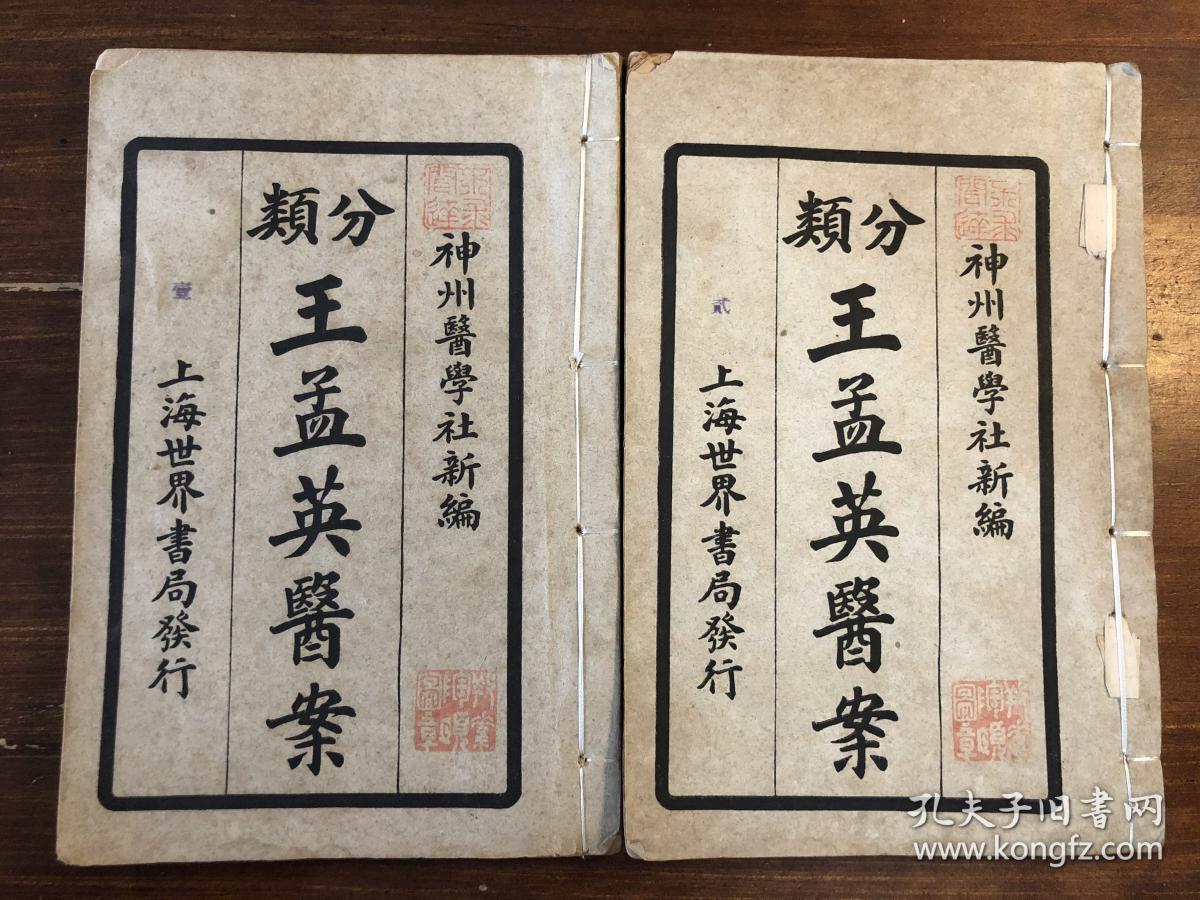 神州醫學社新編
分類
王孟英醫案
壹
上海世界書局發行
神州醫學社新編
分類
王孟英醫案
貳
上海世界書局發行
孔夫子旧书网
www.kongfz.com